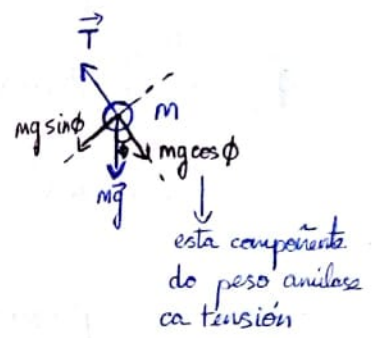 T⃗
m
mg sinϕ
mg cosϕ
ϕ
mg⃗
esta compoñente
do peso anúlase
ca tensión